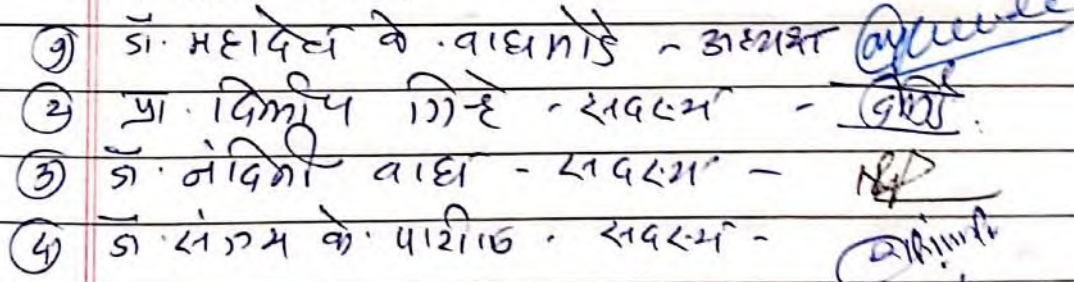 १) डॉ. महादेव के. वाघमोडे - अध्यक्ष
२) प्रा. दिलीप गिऱ्हे - सदस्य -
३) डॉ. नंदिनी वाघ - सदस्य -
४) डॉ. संजय के. पाटील - सदस्य -